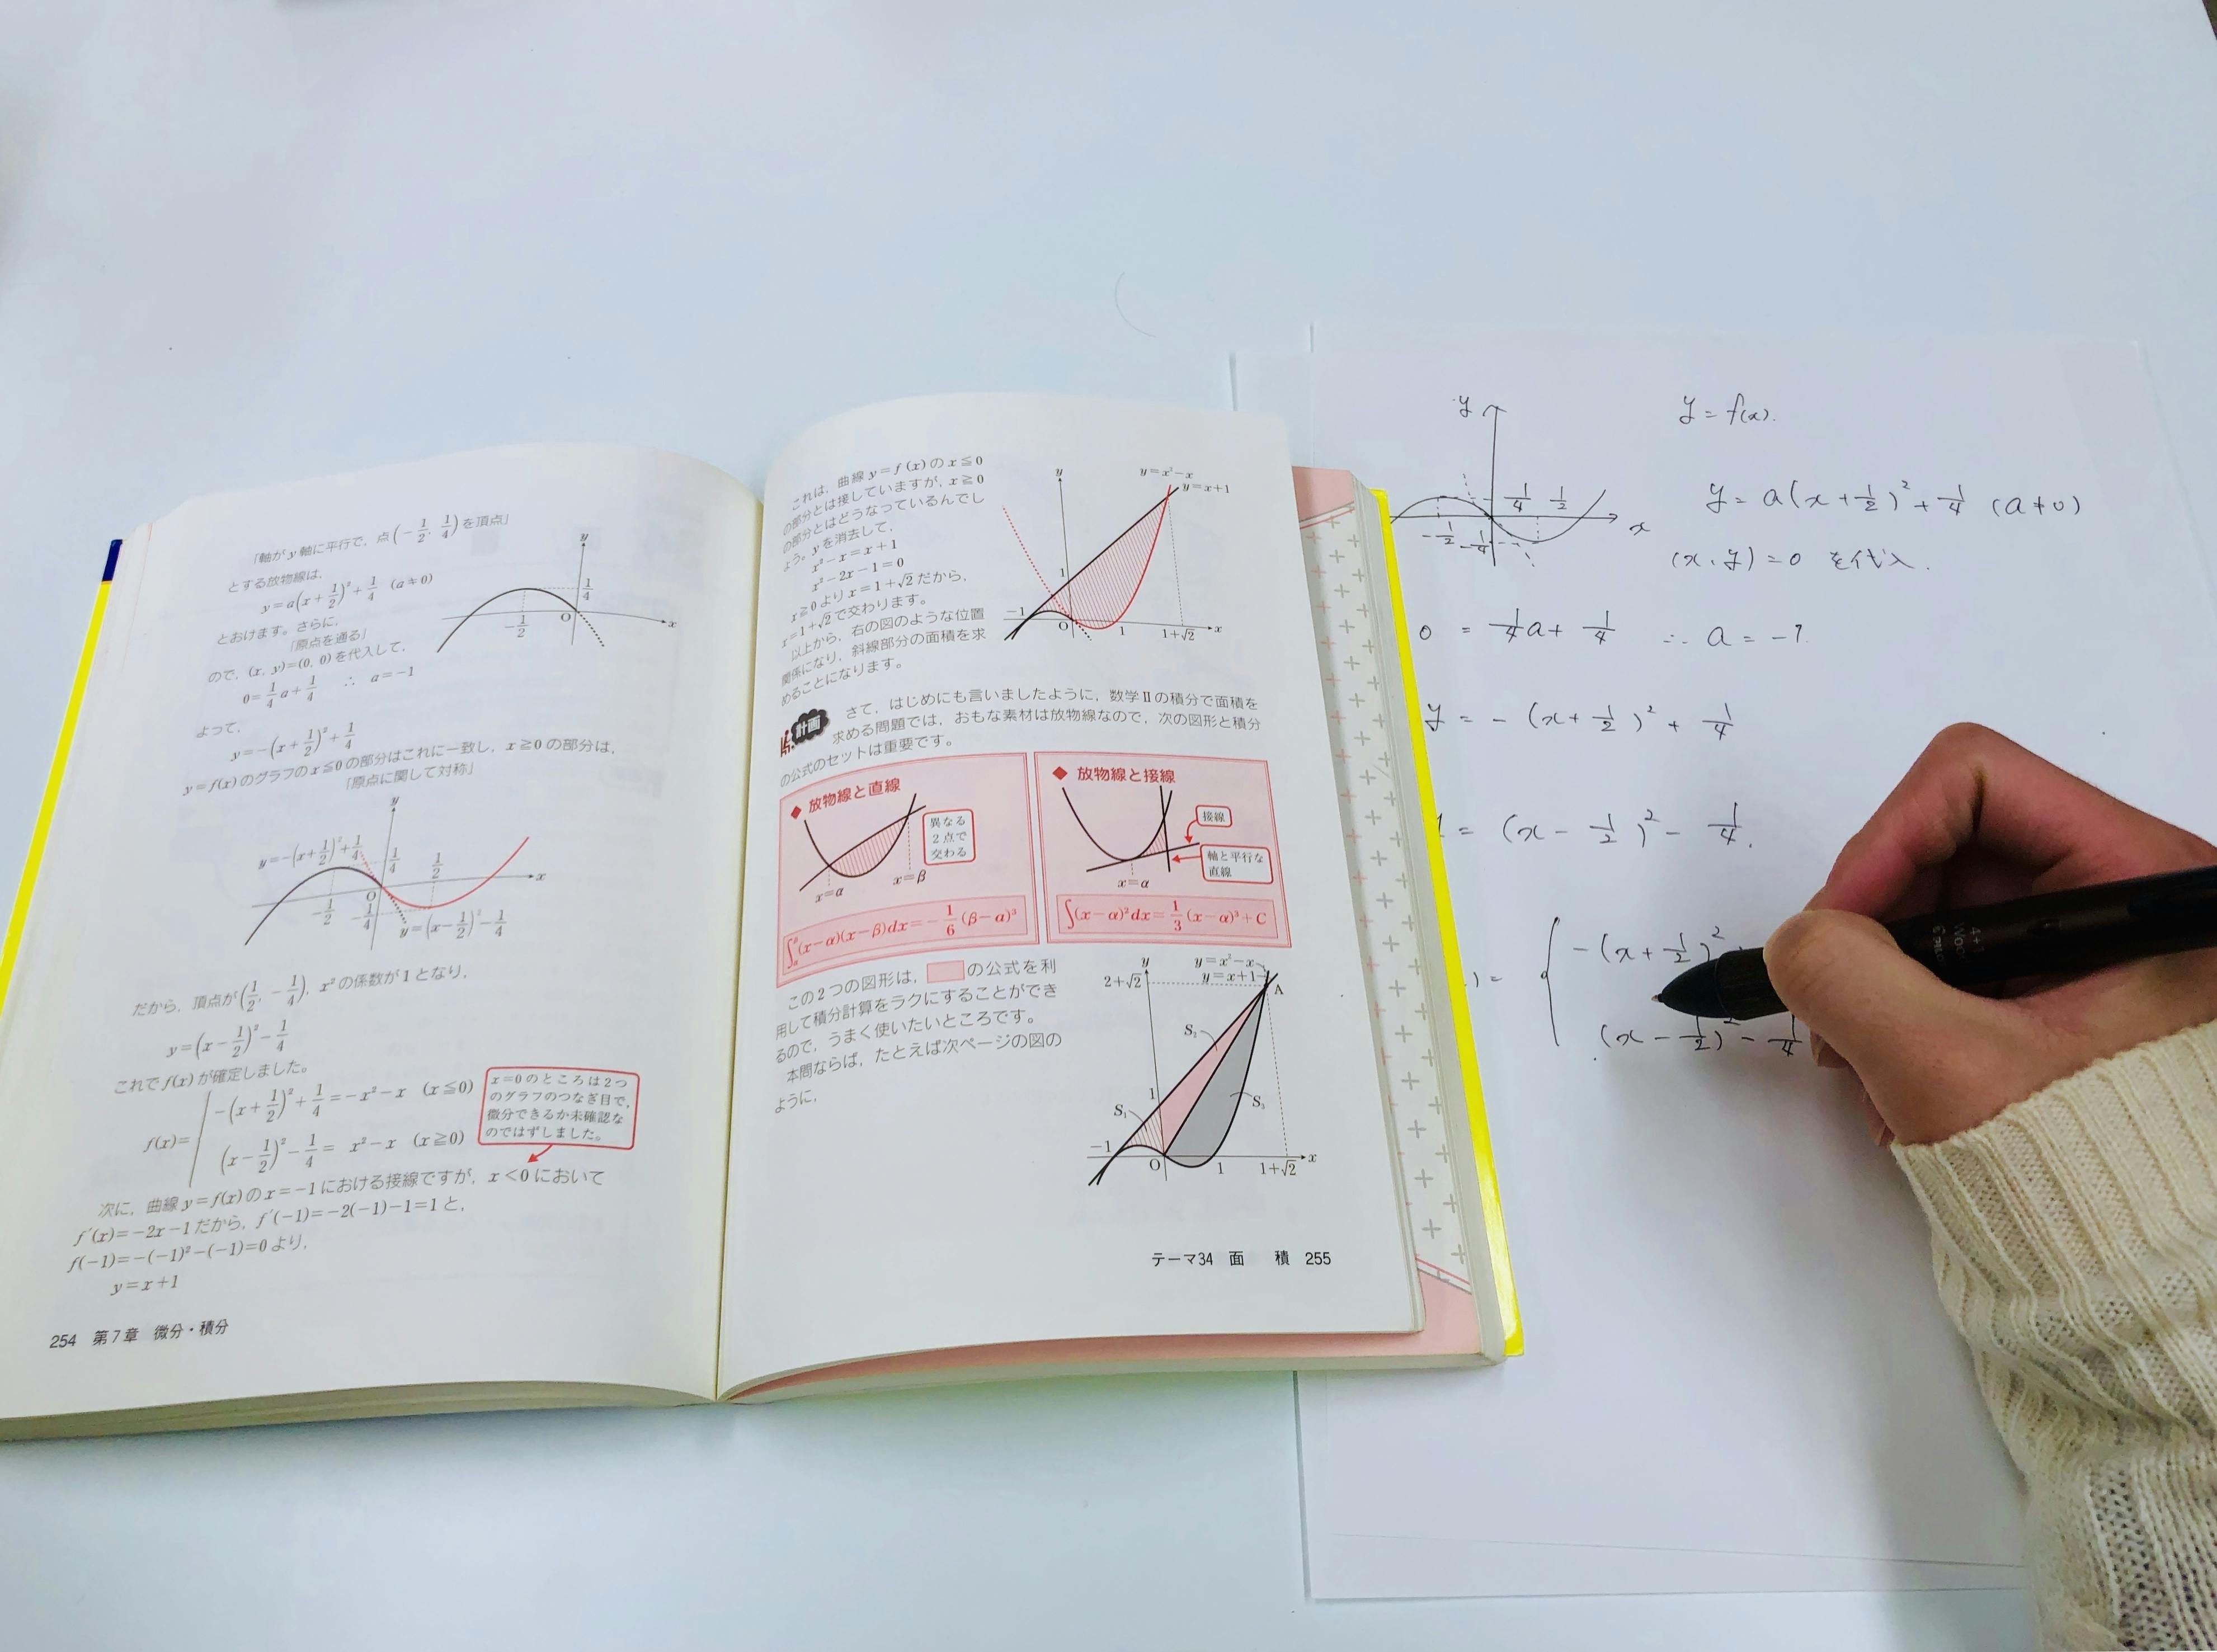 「軸がy軸に平行で，点(−1/2, 1/4)を頂点」
とする放物線は，
y=a(x+1/2)²+1/4 (a≠0)
とおけます。さらに，
「原点を通る」
ので，(x, y)=(0, 0)を代入して，
0=1/4a+1/4 ∴ a=−1
よって，
y=−(x+1/2)²+1/4
y=f(x)のグラフのx≦0の部分はこれに一致し，x≧0の部分は，
「原点に関して対称」
y
1/4
−1/2
O
x
y
y=−(x+1/2)²+1/4
1/4
1/2
x
O
−1/2
−1/4
y=(x−1/2)²−1/4
だから，頂点が(1/2, −1/4)，x²の係数が1となり，
y=(x−1/2)²−1/4
これでf(x)が確定しました。
f(x)=
−(x+1/2)²+1/4=−x²−x (x≦0)
(x−1/2)²−1/4= x²−x (x≧0)
x=0のところは2つ
のグラフのつなぎ目で，
微分できるか未確認な
のではずしました。
次に，曲線y=f(x)のx=−1における接線ですが，x<0において
f′(x)=−2x−1だから，f′(−1)=−2(−1)−1=1と，
f(−1)=−(−1)²−(−1)=0より，
y=x+1
254 第7章 微分・積分
これは，曲線y=f(x)のx≦0
の部分とは接していますが，x≧0
の部分とはどうなっているんでし
ょう。yを消去して，
x²−x=x+1
x²−2x−1=0
x≧0よりx=1+√2だから，
x=1+√2で交わります。
以上から，右の図のような位置
関係になり，斜線部分の面積を求
めることになります。
y
y=x²−x
y=x+1
1
−1
O
1
1+√2
x
計画
さて，はじめにも言いましたように，数学Ⅱの積分で面積を
求める問題では，おもな素材は放物線なので，次の図形と積分
の公式のセットは重要です。
◆ 放物線と直線
異なる
2点で
交わる
x=α
x=β
∫αβ(x−α)(x−β)dx=−1/6(β−α)³
◆ 放物線と接線
接線
軸と平行な
直線
x=α
∫(x−α)²dx=1/3(x−α)³+C
この2つの図形は，の公式を利
用して積分計算をラクにすることができ
るので，うまく使いたいところです。
本問ならば，たとえば次ページの図の
ように，
y
y=x²−x
y=x+1
2+√2
A
S₂
1
S₁
S₃
−1
O
1
1+√2
x
テーマ34 面 積 255
y
1/4 1/2
x
−1/2 −1/4
y=f(x).
y=a(x+1/2)²+1/4 (a≠0)
(x, y)=0 を代入.
0 = 1/4a+1/4 ∴ a=−1.
y=−(x+1/2)²+1/4
= (x−1/2)²−1/4.
)=
−(x+1/2)²
(x−1/2)²−1/4
4+1